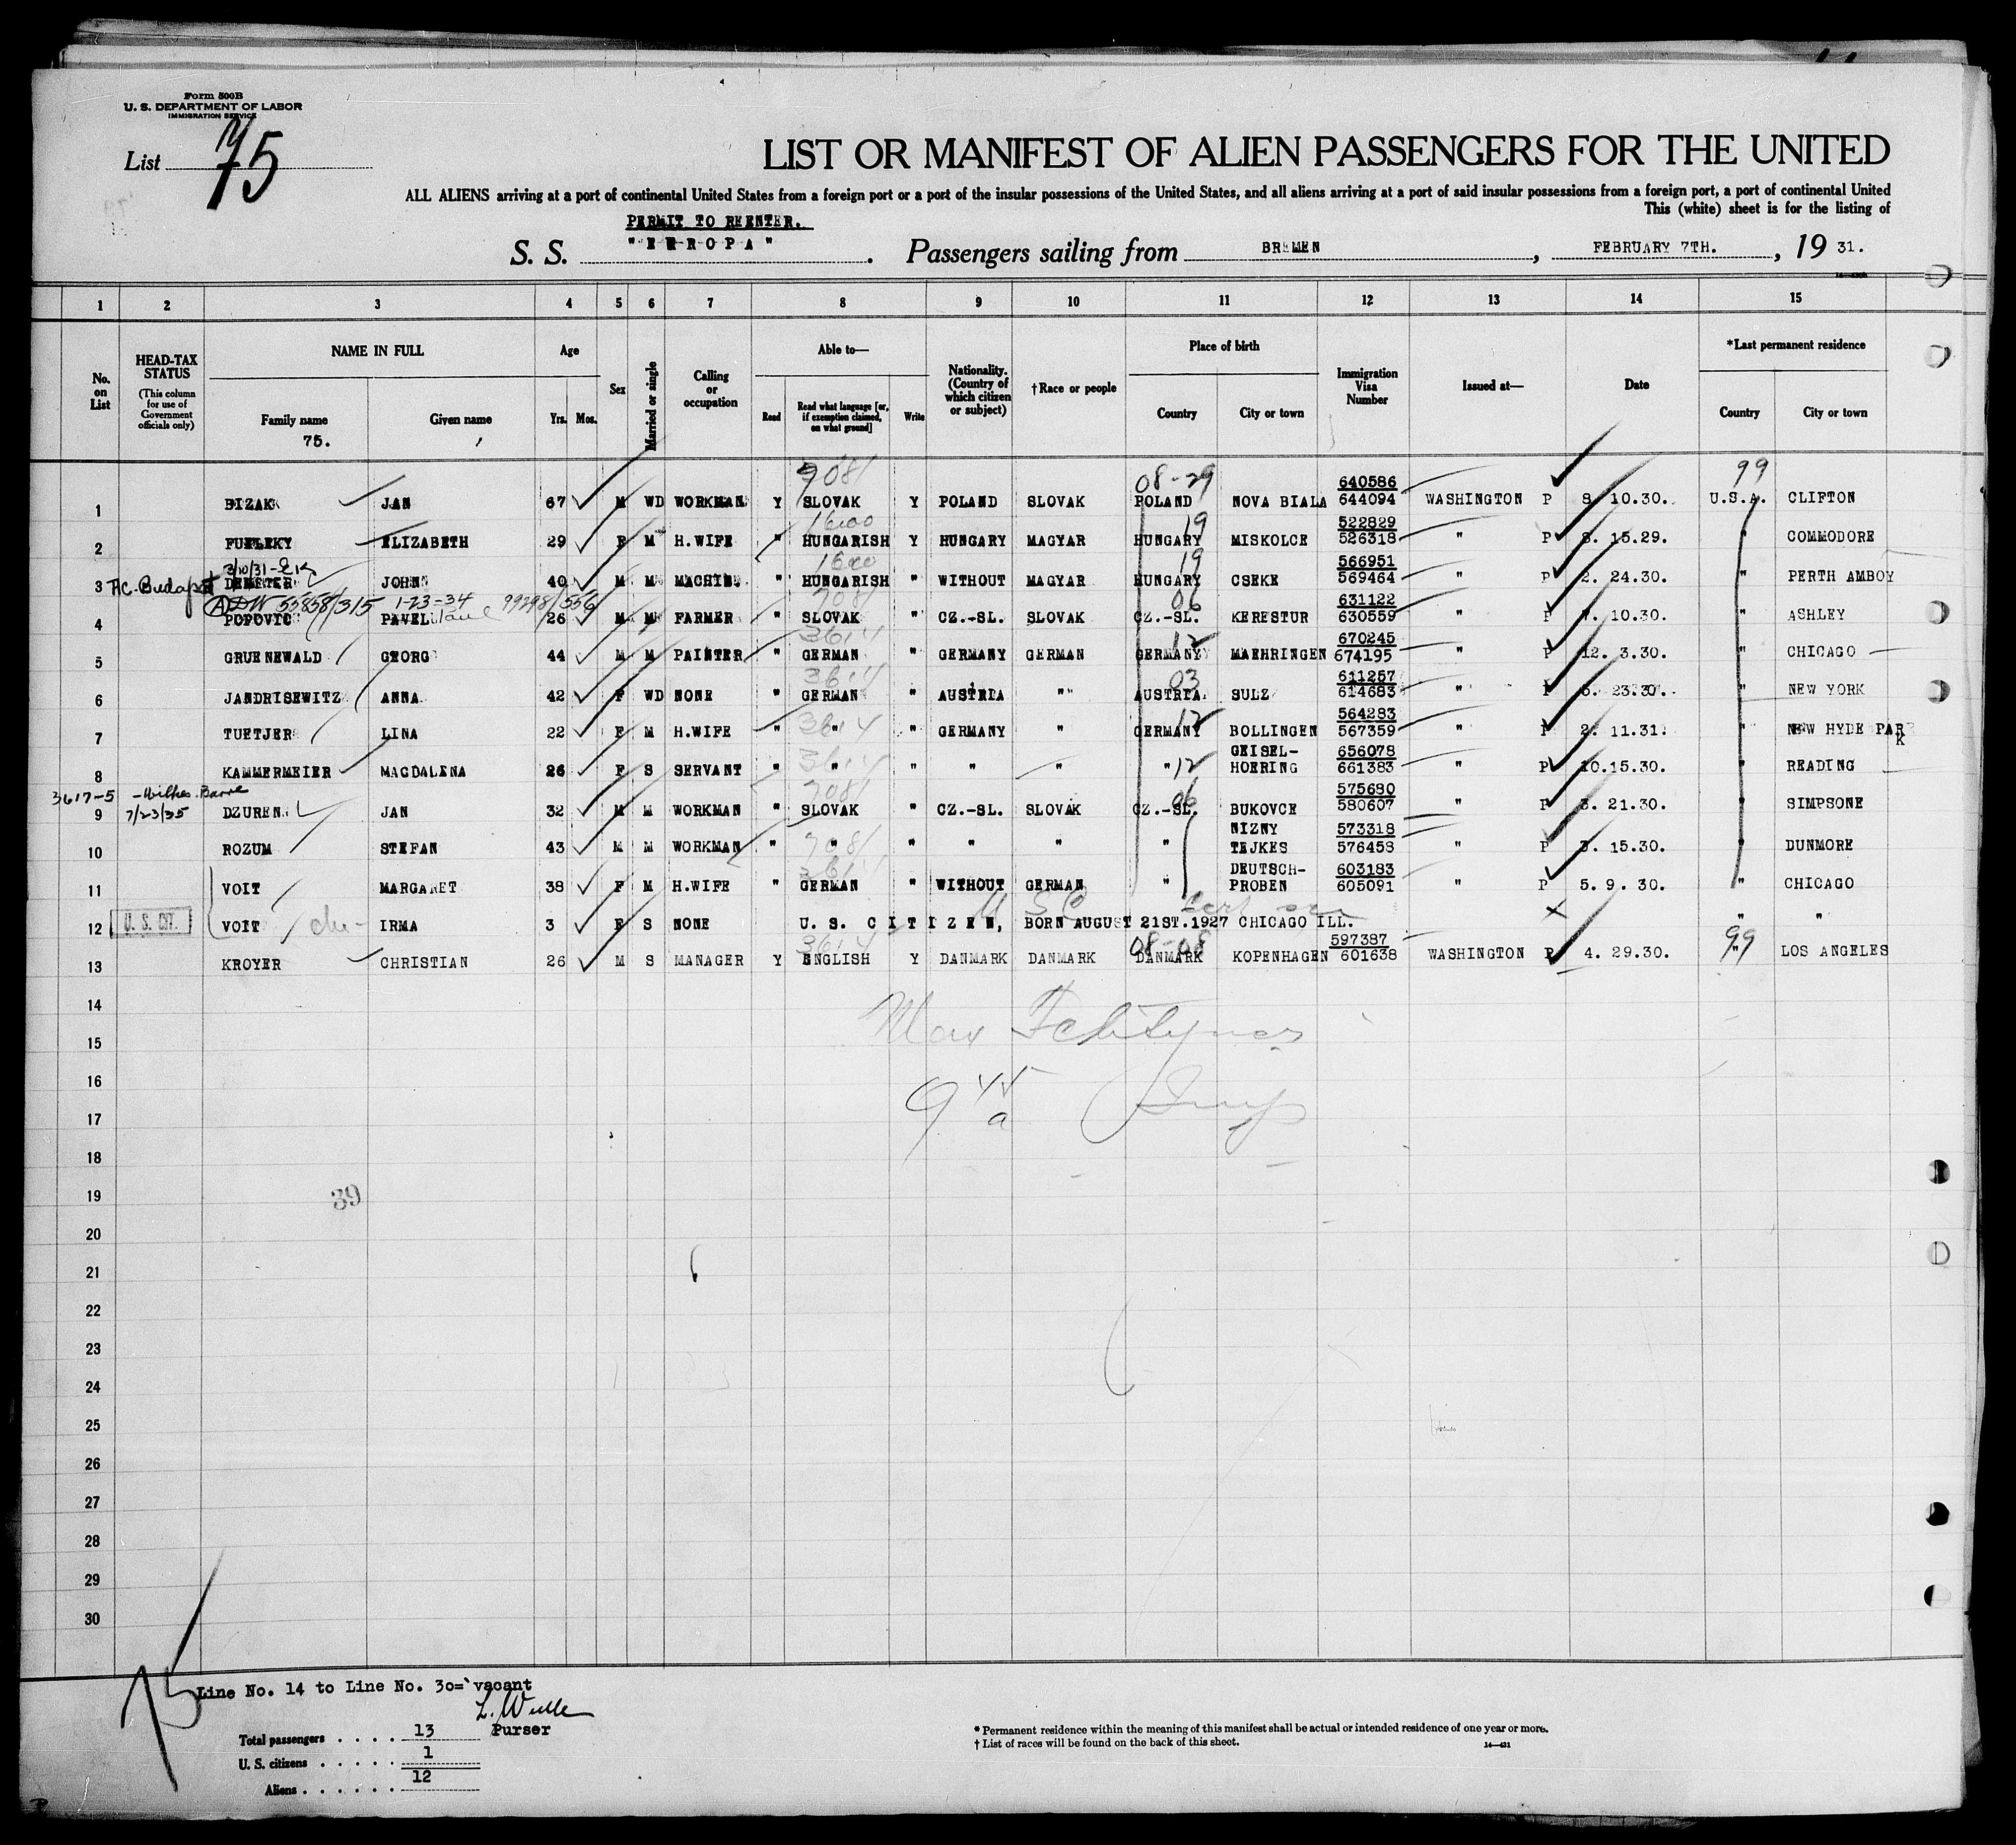 Form 500B
U. S. DEPARTMENT OF LABOR
IMMIGRATION SERVICE
List 75
LIST OR MANIFEST OF ALIEN PASSENGERS FOR THE UNITED
ALL ALIENS arriving at a port of continental United States from a foreign port or a port of the insular possessions of the United States, and all aliens arriving at a port of said insular possessions from a foreign port, a port of continental United
This (white) sheet is for the listing of
PERMIT TO REENTER.
S. S. "E U R O P A". Passengers sailing from BREMEN, FEBRUARY 7TH., 19 31.
1 2 3 4 5 6 7 8 9 10 11 12 13 14 15
No. on List
HEAD-TAX STATUS (This column for use of Government officials only)
NAME IN FULL Family name Given name
75.
Age Yrs. Mos.
Sex
Married or single
Calling or occupation
Able to— Read Read what language [or, if exemption claimed, on what ground] Write
Nationality. (Country of which citizen or subject)
† Race or people
Place of birth Country City or town
Immigration Visa Number
Issued at—
Date
*Last permanent residence Country City or town
7081 08-29 640586 99
1 BIZAK JAN 67 M WD WORKMAN Y SLOVAK Y POLAND SLOVAK POLAND NOVA BIALA 644094 WASHINGTON P 8. 10.30. U.S.A. CLIFTON
1600 19 522829
2 FUELEKY ELIZABETH 29 F M H.WIFE " HUNGARISH Y HUNGARY MAGYAR HUNGARY MISKOLCE 526318 " P 8. 15.29. " COMMODORE
3/10/31 1600 19 566951
3 A.C. Budapest DEMETER JOHN 40 M M MACHIN. " HUNGARISH " WITHOUT MAGYAR HUNGARY CSEKE 569464 " P 2. 24.30. " PERTH AMBOY
55858/315 1-23-34 99298/556 7081 06 631122
4 POPOVIC PAVEL Paul 26 M M FARMER " SLOVAK " CZ.-SL. SLOVAK CZ.-SL. KERESTUR 630559 " P 7. 10.30. " ASHLEY
3614 12 670245
5 GRUENEWALD GEORG 44 M M PAINTER " GERMAN " GERMANY GERMAN GERMANY MAEHRINGEN 674195 " P 12. 3.30. " CHICAGO
3614 03 611257
6 JANDRISEWITZ ANNA 42 F WD NONE " GERMAN " AUSTRIA " AUSTRIA SULZ 614683 " P 5. 23.30. " NEW YORK
3614 12 564283
7 TUETJER LINA 22 F M H.WIFE " " " GERMANY " GERMANY BOLLINGEN 567359 " P 2. 11.31. " NEW HYDE PARK
3614 12 GEISEL- 656078
8 KAMMERMEIER MAGDALENA 26 F S SERVANT " " " " " " HOERING 661383 " P 10.15.30. " READING
3617-5 -Wilkes. Barre 7081 06 575680
9 7/23/35 DZUREN JAN 32 M M WORKMAN " SLOVAK " CZ.-SL. SLOVAK CZ.-SL. BUKOVCE 580607 " P 3. 21.30. " SIMPSONE
7081 NIZNY 573318
10 ROZUM STEFAN 43 M M WORKMAN " " " " " " TEJKES 576458 " P 3. 15.30. " DUNMORE
3614 DEUTSCH- 603183
11 VOIT MARGARET 38 F M H.WIFE " GERMAN " WITHOUT GERMAN " PROBEN 605091 " P 5. 9. 30. " CHICAGO
U S C
12 U. S. CIT. VOIT IRMA 3 F S NONE U. S. C I T I Z E N, BORN AUGUST 21ST.1927 CHICAGO ILL. " "
3614 08-08 597387 99
13 KROYER CHRISTIAN 26 M S MANAGER Y ENGLISH Y DANMARK DANMARK DANMARK KOPENHAGEN 601638 WASHINGTON P 4. 29.30. " LOS ANGELES
14
15 Max
16 9 45
17 a Insp
18
19 39
20
21
22
23
24
25
26
27
28
29
30
75
Line No. 14 to Line No. 30= vacant
Purser
Total passengers . . . . 13
U. S. citizens . . . . . 1
Aliens . . . . . . 12
* Permanent residence within the meaning of this manifest shall be actual or intended residence of one year or more.
† List of races will be found on the back of this sheet.
14—431